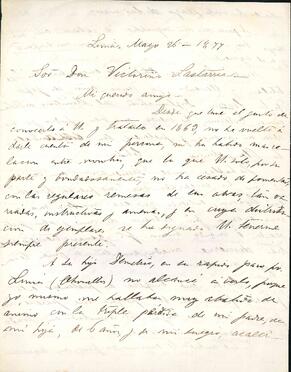 Lima, Mayo 26 - 1877
Sor Don Victorino Lastarria
Mi querido amigo
Desde que tuve el gusto de
conocerlo á U y tratarlo en 1863, no he vuelto á
darle cuenta de mi persona, ni ha habido mas re-
lacion entre nosotros, que la que U solo, por su
parte y bondadosamente, no ha cesado de fomentar,
con las regulares remesas de sus obras, tan va-
riadas, instructivas y amenas, y en cuya distribu-
cion de ejemplares, se ha dignado U tenerme
siempre presente.
A su hijo Demetrio, en su rapido paso por
Lima (Chorrillos) no alcancé á verlo, porque
yo mismo me hallaba muy abatido de
animo con la triple pérdida de mi padre, de
mi hija, de 6 años, y de mi suegro, acaeci-